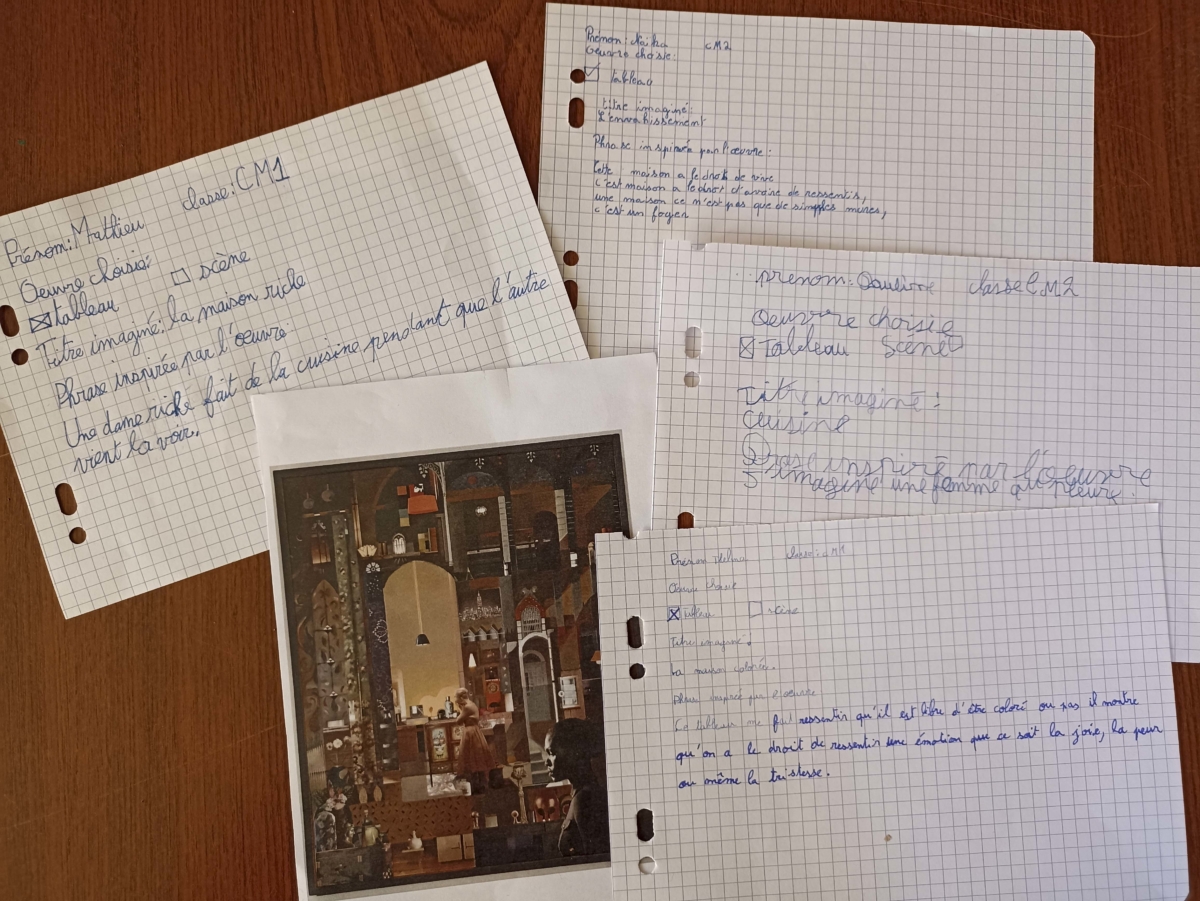 Prénom: Mathieu classe: CM1
Oeuvre choisie:
tableau scène
Titre imaginé: la maison riche
Phrase inspirée par l'oeuvre:
Une dame riche fait de la cuisine pendant que l'autre
vient la voir.
Prénom: CM2
Oeuvre choisie:
tableau
titre imaginé:
L'envahissement
Phrase inspirée par l'œuvre:
Cette maison a le droit de vivre
c'est maison a le droit d'avoire de ressentis,
une maison ce n'est pas que de simples mures,
c'est un foyer
prenom: classe CM2
Oeuvre choisie
Tableau Scène
Titre imaginé:
cuisine
inspiré par l'oeuvre
J'imagine une femme qui pleure.
Prénom classe: CM1
Oeuvre choisie
tableau scène
Titre imaginé:
La maison colorée.
Phrase inspirée par l'oeuvre
Ce tableau me fait ressentir qu'il est libre d'être coloré ou pas il montre
qu'on a le droit de ressentir une émotion que ce soit la joie, la peur
ou même la tristesse.